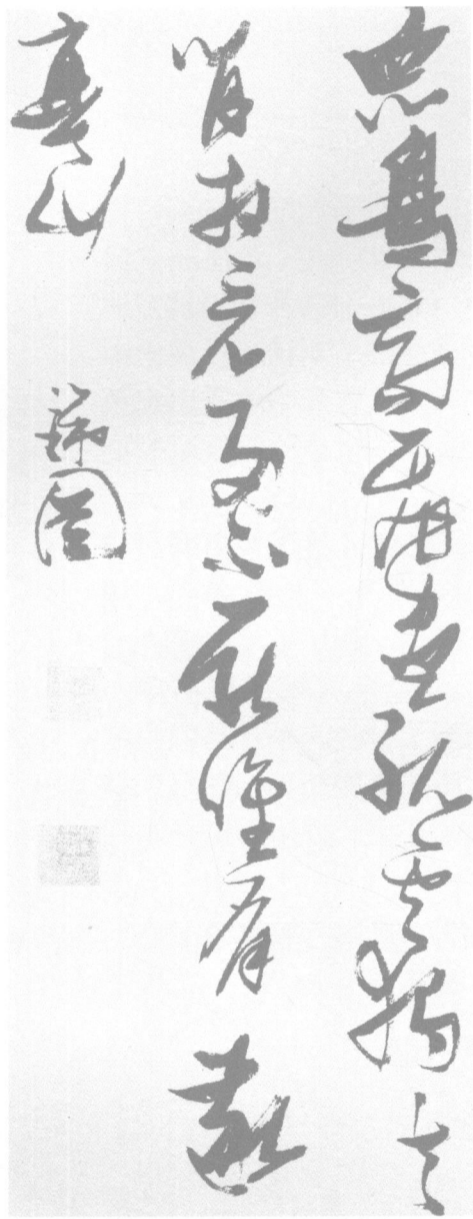 衆鳥高飛盡孤雲獨去
閒相看兩不厭惟有敬
亭山
瑞圖